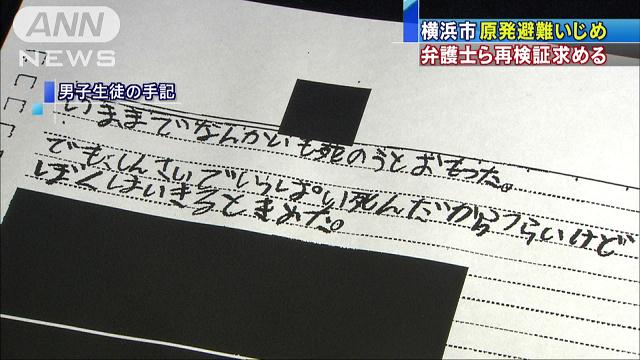 ANN
NEWS
横浜市 原発避難いじめ
弁護士ら再検証求める
男子生徒の手記
いままでなんかいも死のうとおもった。
でも、しんさいでいっぱい死んだからつらいけど
ぼくはいきるときめた。